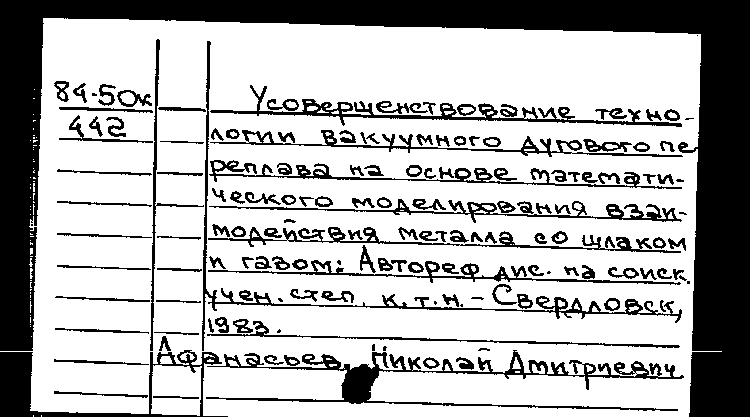 84-50к
442
Усовершенствование техно-
логии вакуумного дугового пе
реплава на основе математи-
ческого моделирования взаи-
модействия металла со шлаком
и газом: Автореф дис. на соиск.
учен. степ. к.т.н. - Свердловск,
1983.
Афанасьев, Николай Дмитриевич